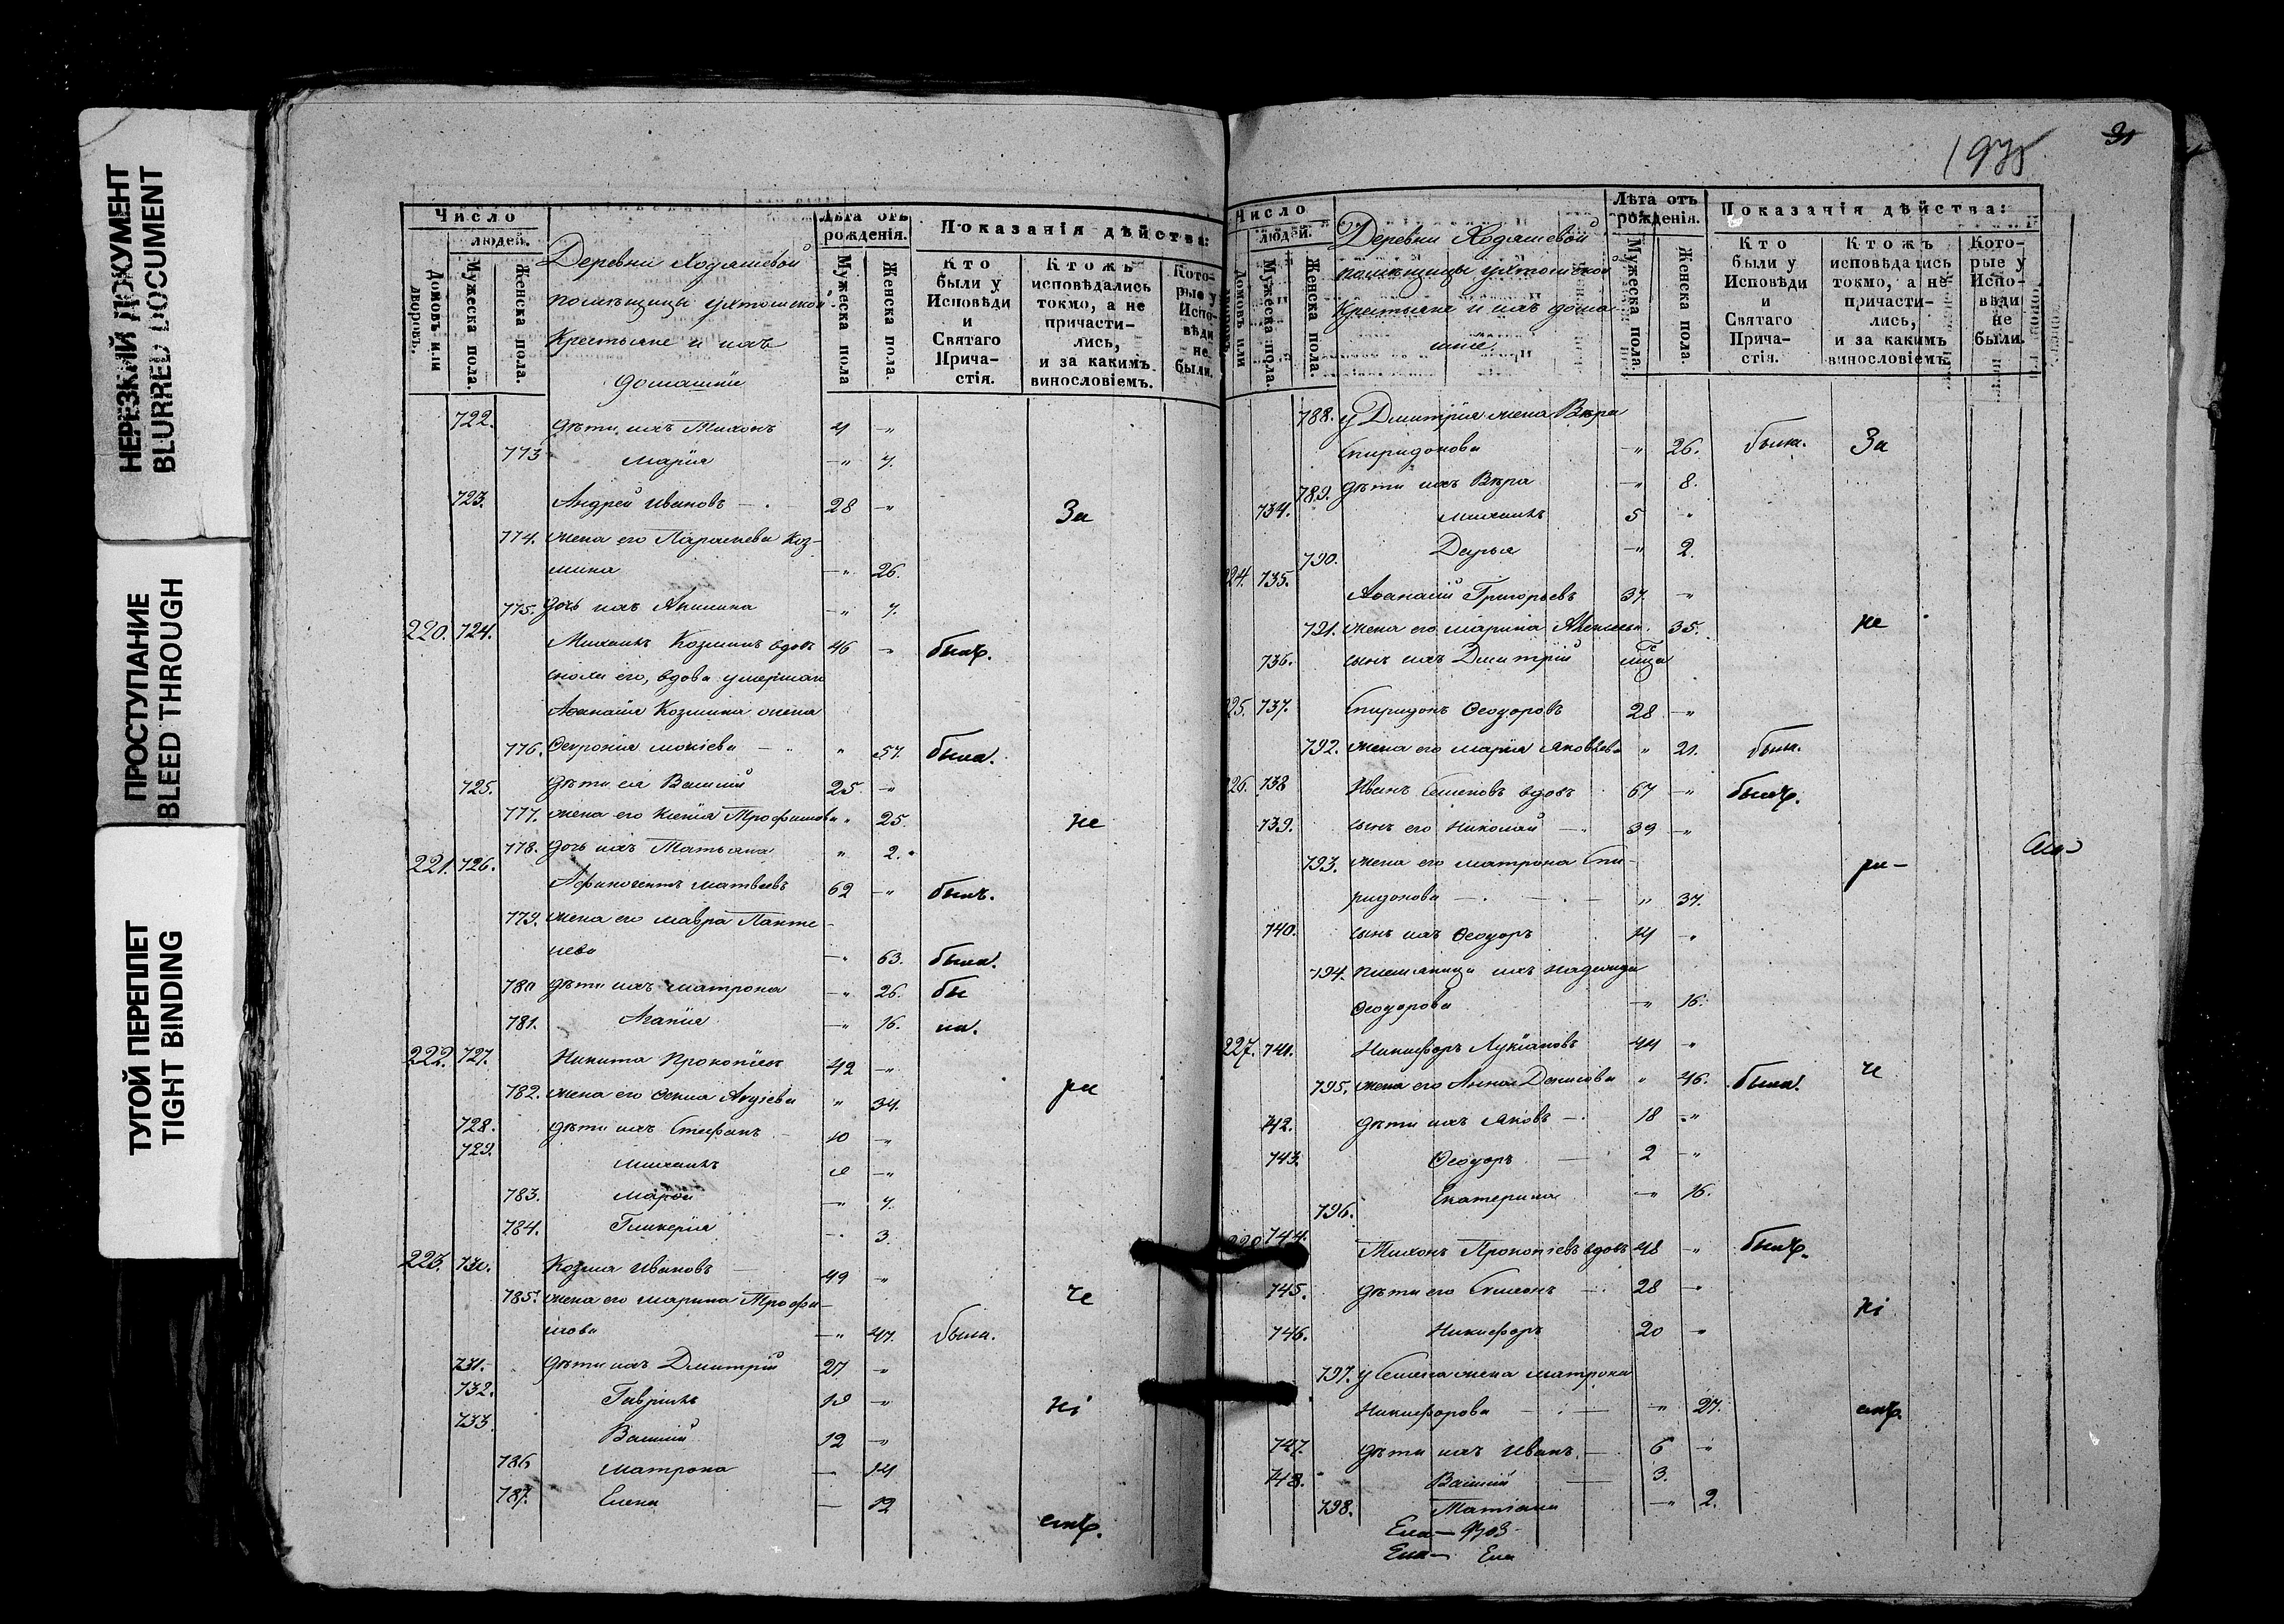 НЕРЕЗКИЙ ДОКУМЕНТ
BLURRED DOCUMENT
ПРОСТУПАНИЕ
BLEED THROUGH
ТУГОЙ ПЕРЕПЛЕТ
TIGHT BINDING
Число
людей.
Домовъ или дворовъ.
Мужеска пола.
Женска пола.
Деревни Ходяшевой
помѣщицы Ухтомской
Крестьяне и ихъ
домашніи
Лѣта отъ рожденія.
Мужеска пола
Женска пола.
Показанія дѣйства:
Кто были у Исповѣди и Святаго Прича-стія.
Ктожъ исповѣдались токмо, а не причасти-лись, и за какимъ винословіемъ.
Кото-рые у Испо-вѣди не были.
722. дѣти ихъ Тихонъ 4 -"
773 Марія -" 7.
723. Андрей Ивановъ 28 -" За
774. жена его Параскева Коз-
мина -" 26.
775. дочь ихъ Акилина -" 7.
220. 724. Михаилъ Козминъ вдовъ 46 - былъ.
сноха его, вдова умершаго
Аѳанасія Козмина жена
776. Ѳеѵронія " 57. была.
725. дѣти ея Василій 25 -"
777. жена его Ксенія Трофимова " 25. не
778. дочь ихъ Татьяна " 2.
221. 726. Афиногентъ Матвѣевъ 62 -" былъ.
779. жена его Мавра Панте
леева -" 63. была.
780 дѣти ихъ Матрона -" 26. бы
781. Агапія -" 16. ла.
222. 727. Никита Прокопіевъ 42 -"
782. жена его Ѳекла " 34. ра
728. дѣти ихъ Стефанъ 10 -"
729. Михаилъ -"
783. Марѳа -" 7.
784. Гликерія -" 3.
223. 730. Козма Ивановъ 49 -"
785. жена его Марина Трофи- че
мова -" 47. была.
731. дѣти ихъ Дмитрій 27 -"
732. Гавріилъ -" ні
733 Василій 12 -"
786 Матрона 14
787. Елена 12
емъ.
1935
31
Число
людей.
Домовъ или
Мужеска пола.
Женска пола.
Деревни Ходяшевой
помѣщицы Ухтомской
Крестьяне и ихъ дома
шніе
Лѣта отъ рожденія.
Мужеска пола.
Женска пола.
Показанія дѣйства:
Кто были у Исповѣди и Святаго Прича-стія.
Ктожъ исповѣдались токмо, а не причасти-лись, и за какимъ винословіемъ.
Кото-рые у Испо-вѣди не были.
788. у Дмитрія жена Вѣра
Спиридонова -" 26. была. За
789. дѣти ихъ Вѣра -" 8.
734. Михаилъ 5 "
790. Дарья -" 2.
224. 735. Аѳанасій Григорьевъ 37 -"
791. жена его Марина Алексѣева 35. не
736. сынъ ихъ Дмитрій
225. 737. Спиридонъ Ѳеодоровъ 28 -"
792. жена его Марія Яковлева " 21. была.
226. 738 Иванъ Семеновъ вдовъ 67 -" былъ.
739. сынъ его Николай 39 -"
793. жена его Матрона Спи- ра-
ридонова " 37.
740. сынъ ихъ Ѳеодоръ 14 -"
794. племянница ихъ Надежда
Ѳеодорова -" 16.
227. 741. Никифоръ Лукіановъ 44 -"
795. жена его Анна Денисова " 46. была. че
742. дѣти ихъ Яковъ 18 -"
743. Ѳеодоръ 2 -"
796. Екатерина -" 16.
228 744. Тихонъ Прокопіевъ вдовъ 48 -" былъ.
745. дѣти его Симеонъ 28 -" ні
746. Никифоръ 20 -"
797. у Симеона жена Матрона
Никифорова -" 27. емъ.
747. дѣти ихъ Иванъ 6 -"
748. Василій 3.
798. Татіана -" 2.